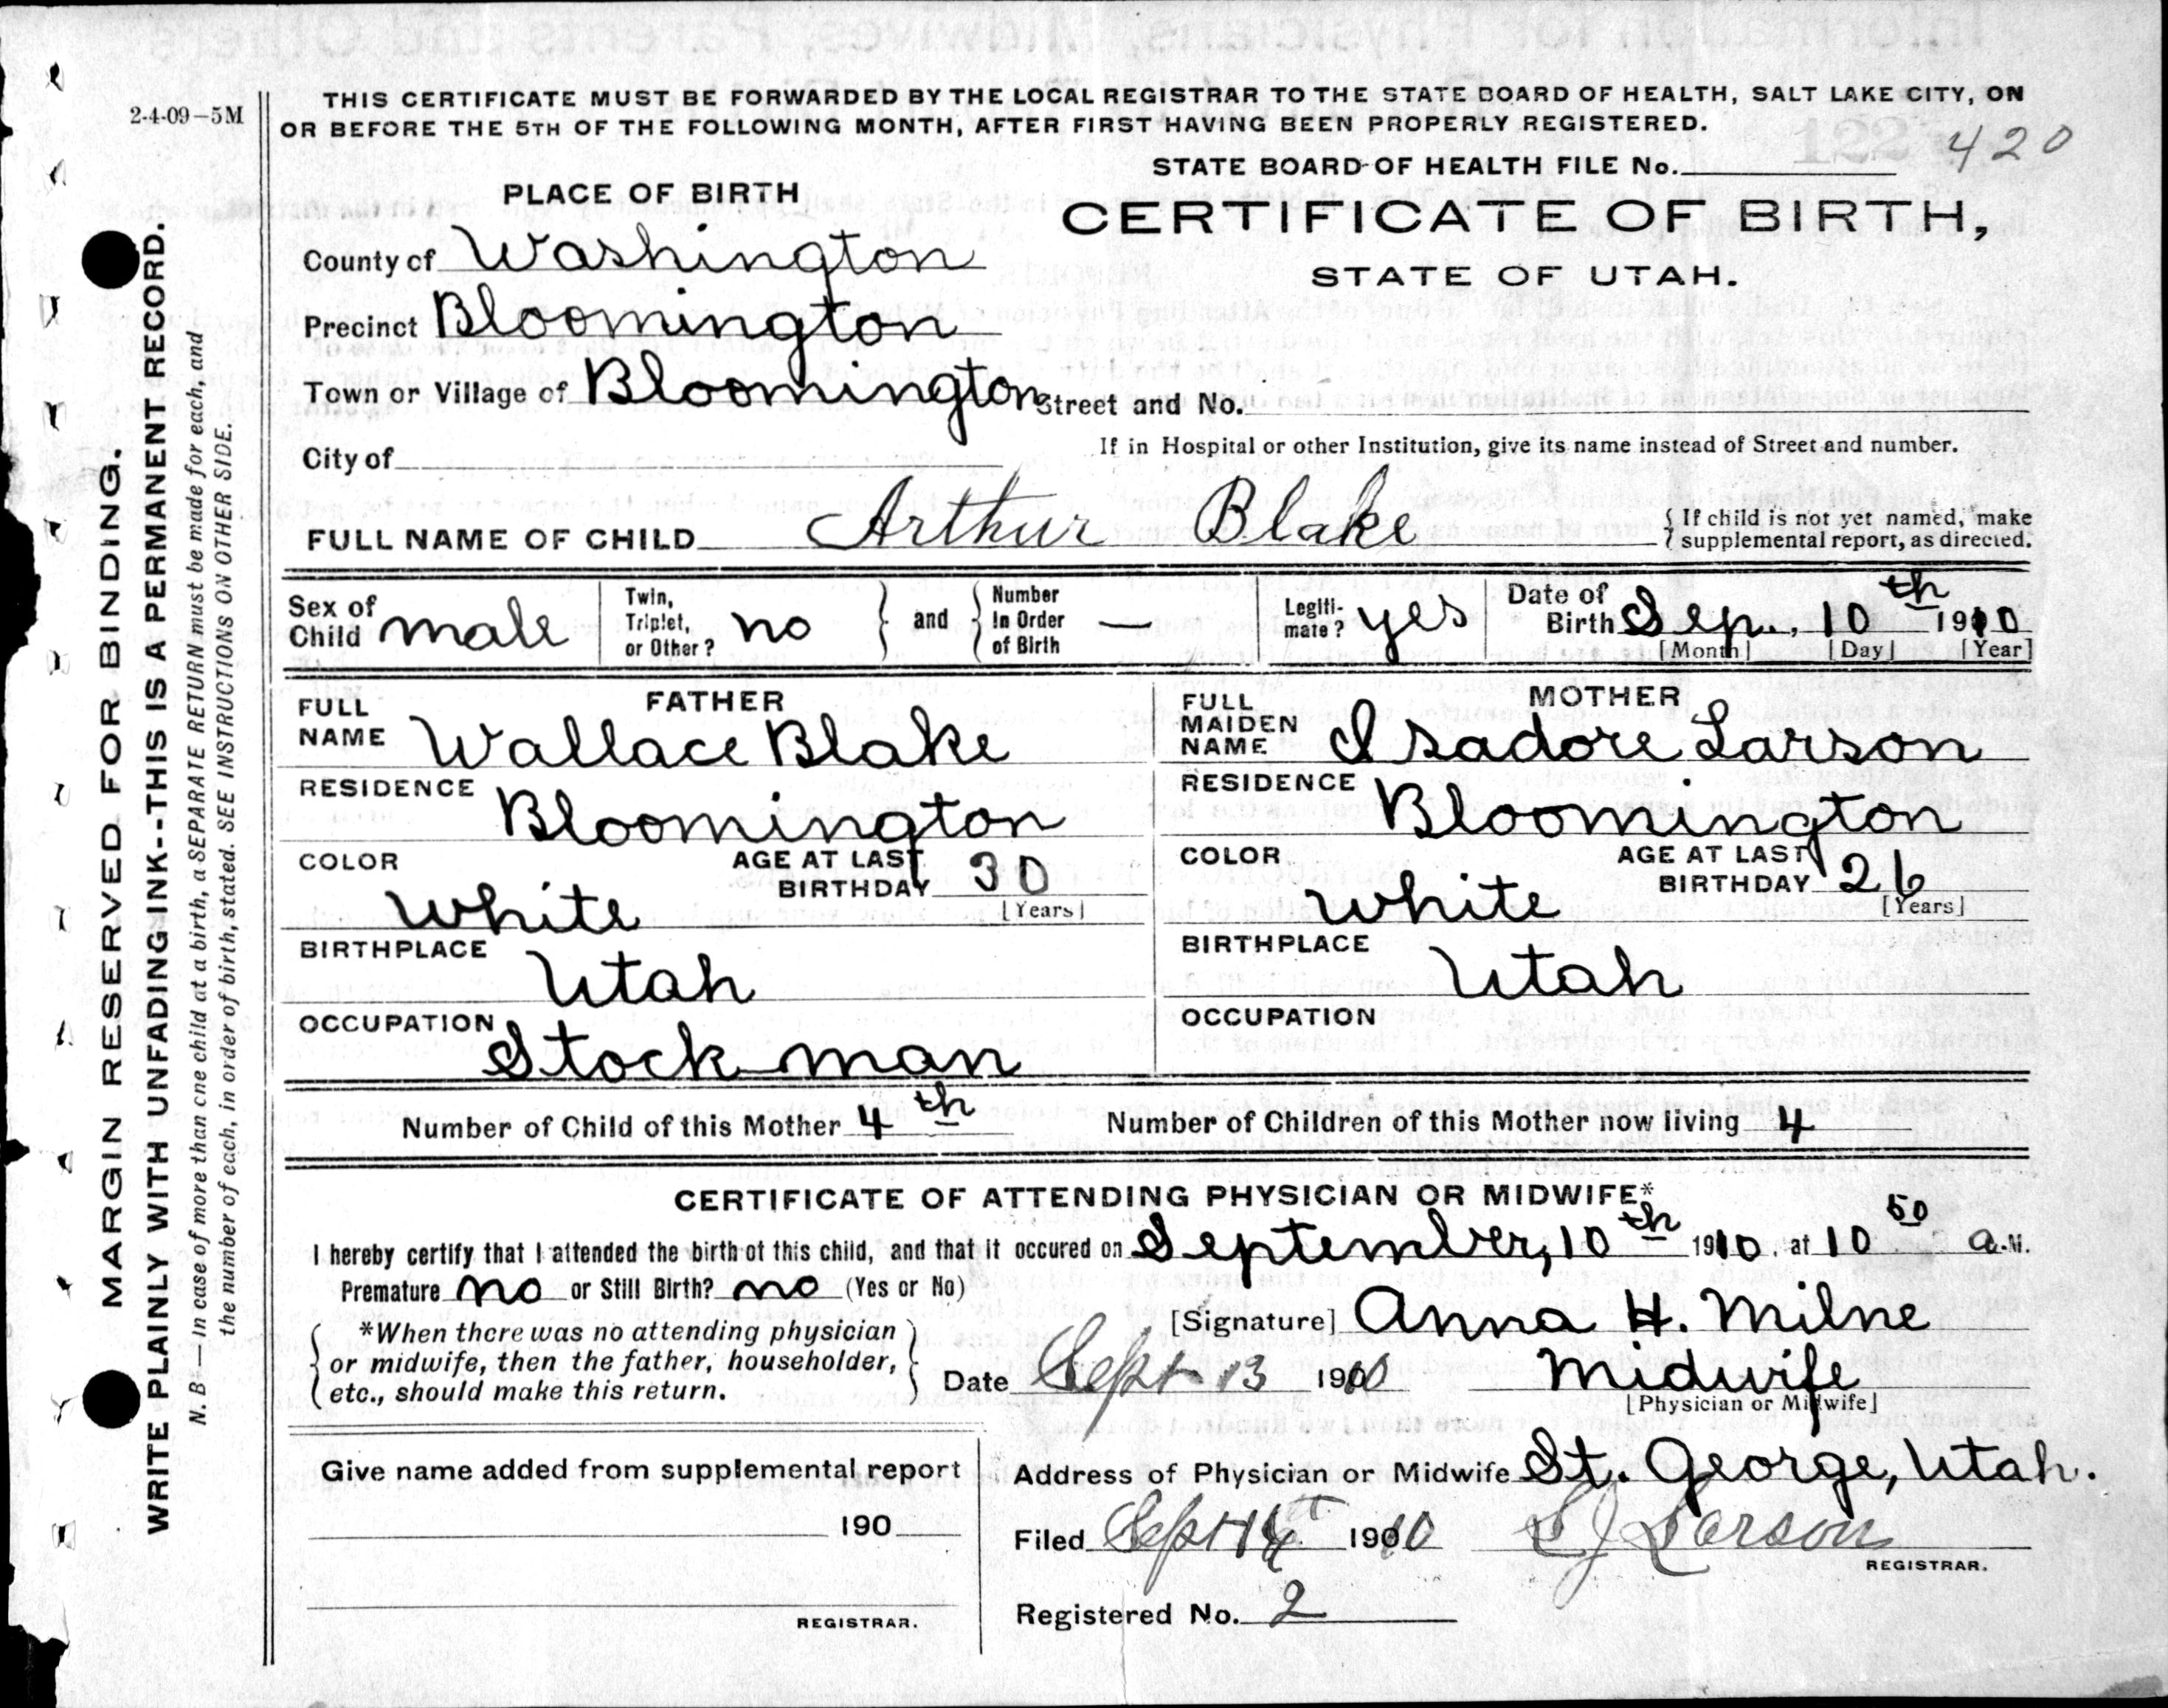 2-4-09-5M
THIS CERTIFICATE MUST BE FORWARDED BY THE LOCAL REGISTRAR TO THE STATE BOARD OF HEALTH, SALT LAKE CITY, ON
OR BEFORE THE 5TH OF THE FOLLOWING MONTH, AFTER FIRST HAVING BEEN PROPERLY REGISTERED.
STATE BOARD OF HEALTH FILE No. 420
PLACE OF BIRTH
CERTIFICATE OF BIRTH,
STATE OF UTAH.
County of Washington
Precinct Bloomington
Town or Village of Bloomington Street and No.
City of
If in Hospital or other Institution, give its name instead of Street and number.
FULL NAME OF CHILD Arthur Blake
{ If child is not yet named, make
supplemental report, as directed.
Sex of Child male
Twin, Triplet, or Other? no } and { Number In Order of Birth —
Legiti-mate? yes
Date of Birth Sep., 10th 1910
[Month] [Day] [Year]
FATHER
FULL NAME Wallace Blake
RESIDENCE Bloomington
COLOR White
AGE AT LAST BIRTHDAY 30 [Years]
BIRTHPLACE Utah
OCCUPATION Stock man
MOTHER
FULL MAIDEN NAME Isadore Larson
RESIDENCE Bloomington
COLOR White
AGE AT LAST BIRTHDAY 26 [Years]
BIRTHPLACE Utah
OCCUPATION
Number of Child of this Mother 4th Number of Children of this Mother now living 4
CERTIFICATE OF ATTENDING PHYSICIAN OR MIDWIFE*
I hereby certify that I attended the birth of this child, and that it occured on September, 10th 1910, at 10 50 a.M.
Premature no or Still Birth? no (Yes or No)
*When there was no attending physician
or midwife, then the father, householder,
etc., should make this return.
[Signature] Anna H. Milne
Date Sept 13 1910 Midwife
[Physician or Midwife]
Give name added from supplemental report
190
REGISTRAR.
Address of Physician or Midwife St. George, Utah.
Filed Sept 1910 S J Larson
REGISTRAR.
Registered No. 2
MARGIN RESERVED FOR BINDING.
WRITE PLAINLY WITH UNFADING INK--THIS IS A PERMANENT RECORD.
N. B—In case of more than one child at a birth, a SEPARATE RETURN must be made for each, and
the number of each, in order of birth, stated. SEE INSTRUCTIONS ON OTHER SIDE.